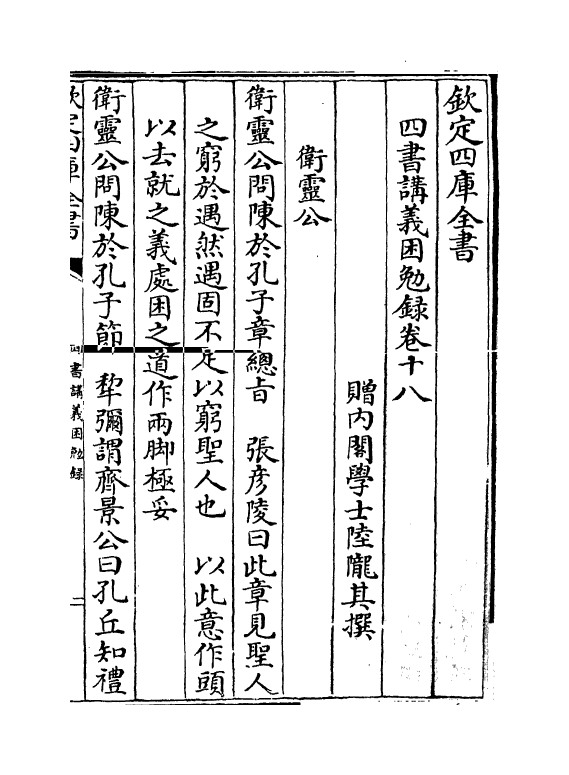 欽定四庫全書
四書講義困勉録卷十八
贈内閣學士陸隴其撰
衛靈公
衛靈公問陳於孔子章總旨　張彦陵曰此章見聖人
之窮於遇然遇固不足以窮聖人也　以此意作頭
以去就之義處困之道作兩脚極妥
衛靈公問陳於孔子節　犂彌謂齊景公曰孔丘知禮
欽定四庫全書
四書講義困勉録